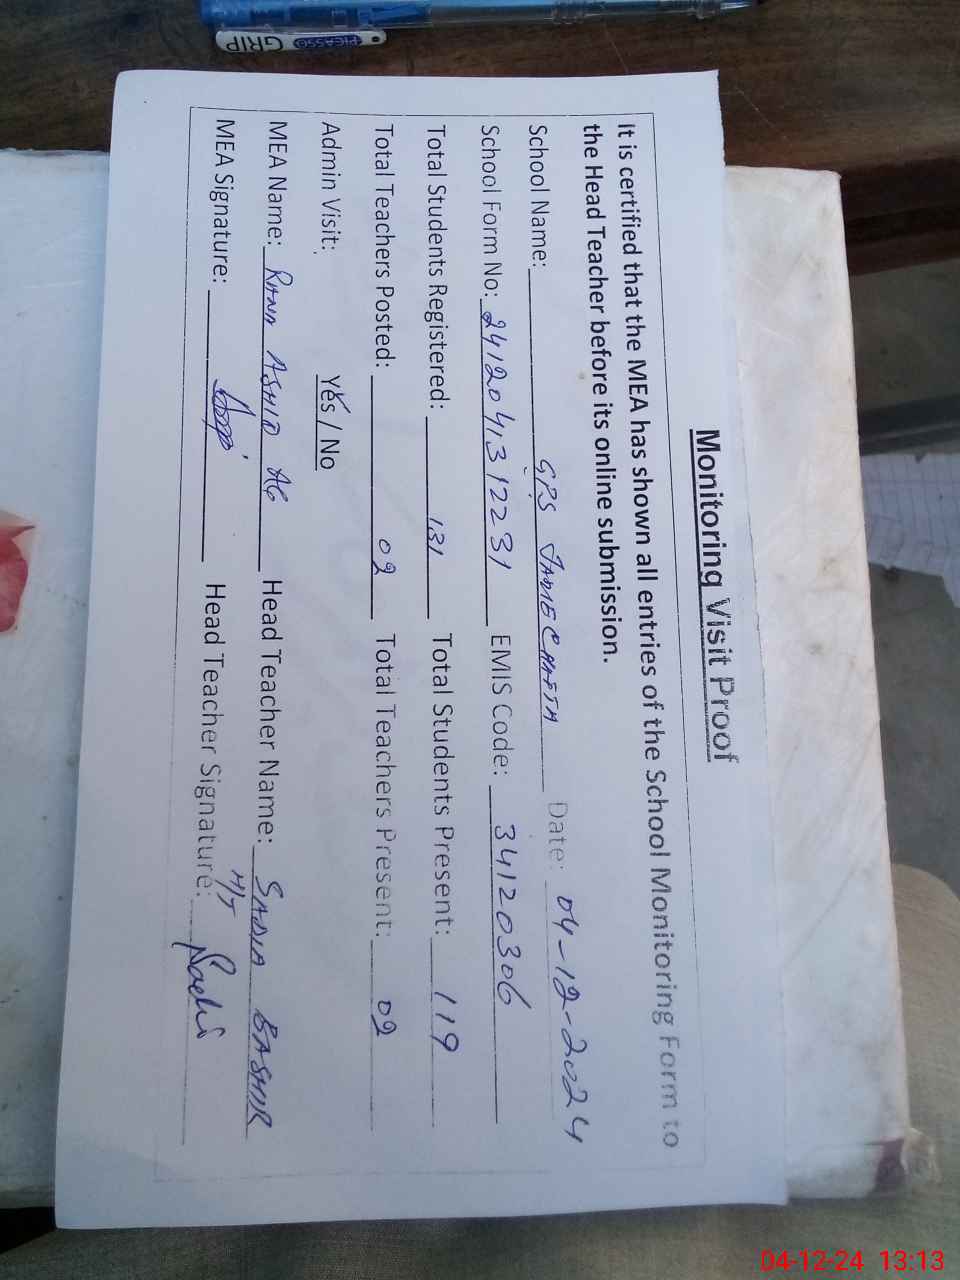 PICASSO
GRIP
Monitoring Visit Proof
It is certified that the MEA has shown all entries of the School Monitoring Form to
the Head Teacher before its online submission.
School Name: GPS Date: 04-12-2024
School Form No: 2412041312231 EMIS Code: 34120306
Total Students Registered: 131 Total Students Present: 119
Total Teachers Posted: 02 Total Teachers Present: 02
Admin Visit: Yes / No
MEA Name: RANA Head Teacher Name: SADIA BASHIR
MEA Signature: Head Teacher Signature:
H/T
04-12-24 13:13